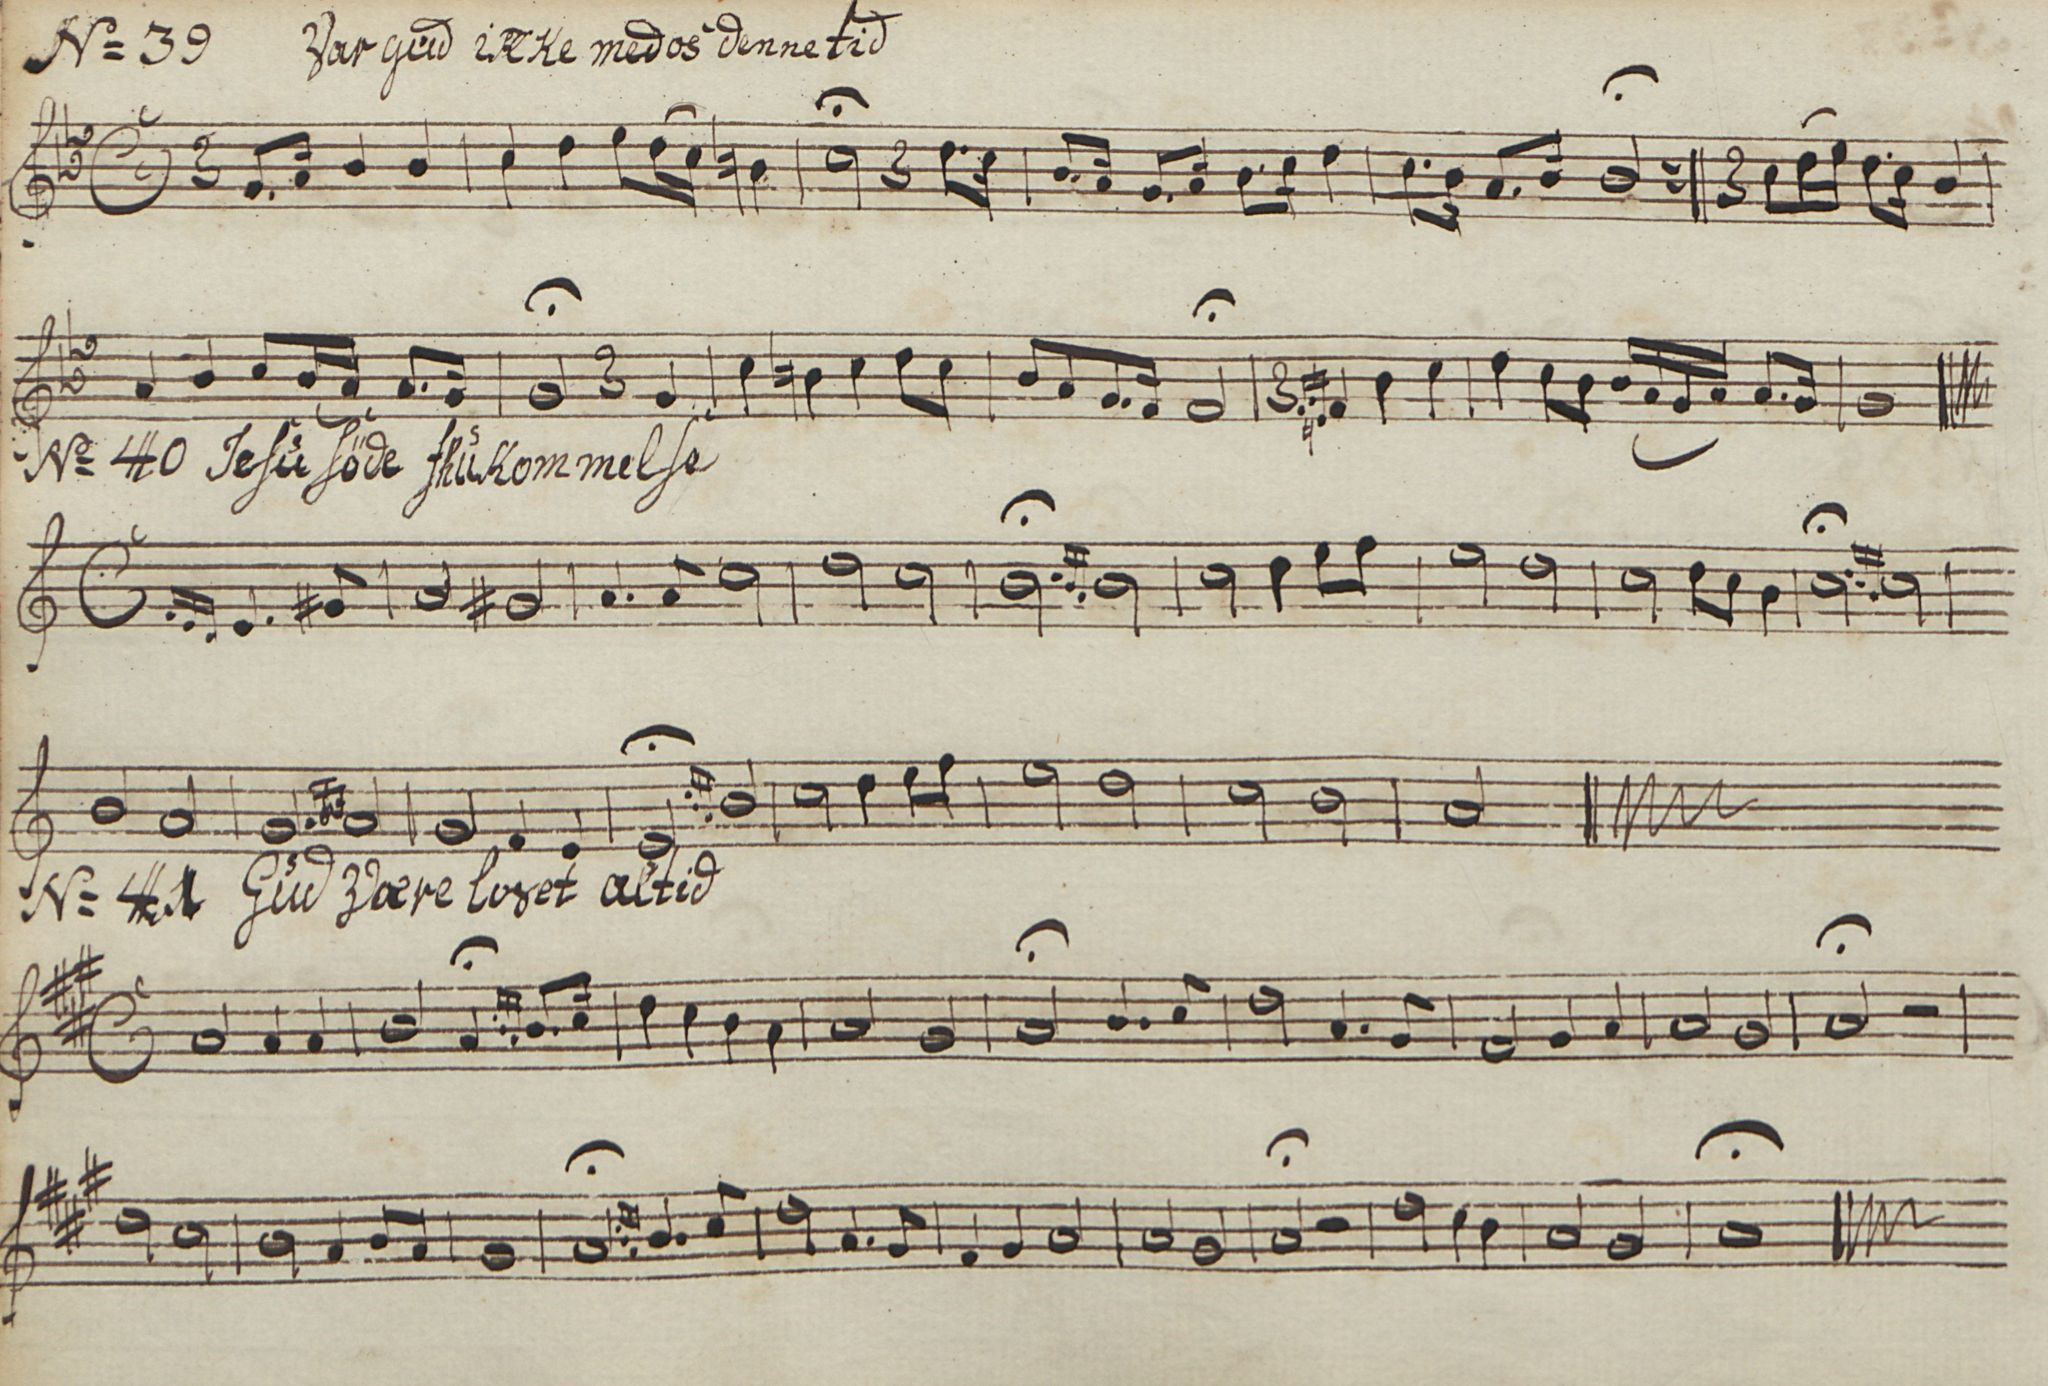 No= 39 Var gud ikke med os denne tid
No= 40 Jesu söde ihukommelse
No= 41 Gud være lovet altid